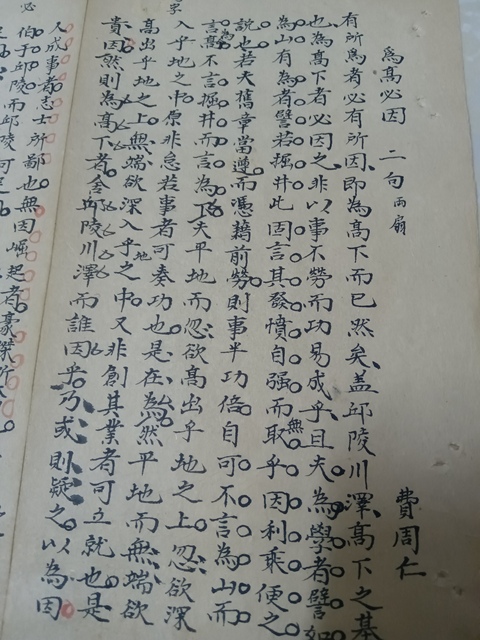 為高必因 二句 兩扇
費周仁
有所為者必有所因即為高下而已然矣蓋邱陵川澤高下之基
也為高下者必因之非以事不勞而功易成乎且夫為學者譬如
為山有為者譬若掘井此因言其發憤自强而無取乎因利乘便之
說也若夫舊章當遵而憑藉前勞則事半功倍自可不言為山而
為高不言掘井而言為下夫平地而忽欲高出乎地之上忽欲深
入乎地之中原非怠若事者可奏功也是在為然平地而無端欲
高出乎地之上無端欲深入乎地之中又非創其業者可立就也是
貴因然則為高下者舍邱陵川澤而誰因乎乃或則疑之以為因
人成事者志士所鄙也無因崛起者豪傑所
伯于邱陵而邱陵可
必
字